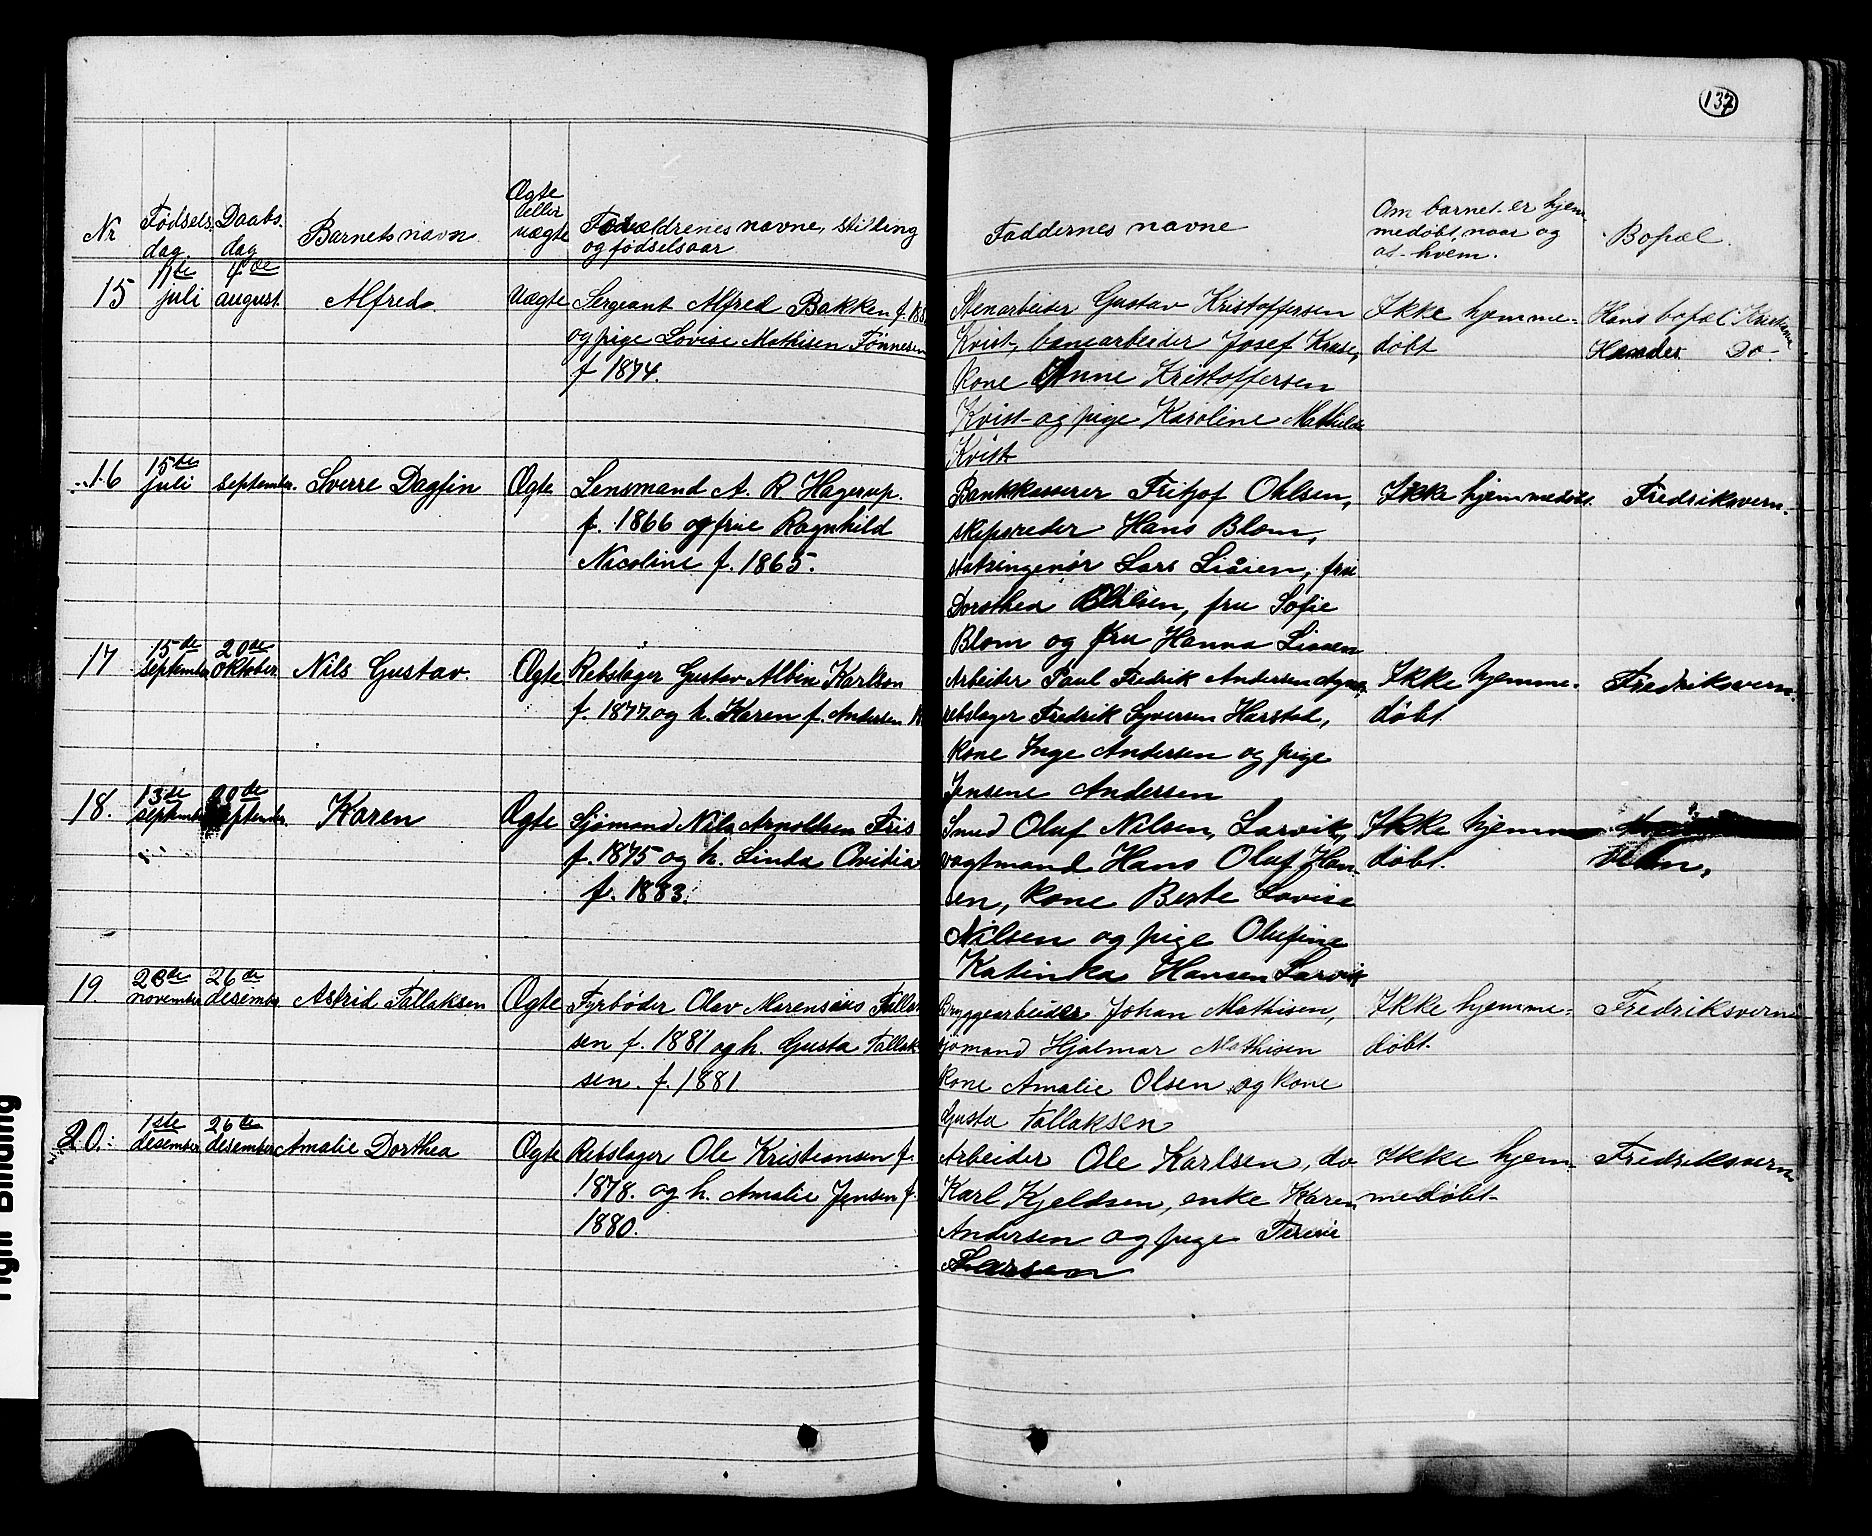 137
Nr
Fødsels
dag.
Daabs
dag
Barnets navn
Ægte
eller
uægte
Forældrenes navne, stilling
og fødselsaar
Faddernes navne
Om barnet er hjem
medøbt, naar og
af hvem.
Bopæl.
15
11de
juli
4de
august.
Alfred.
Uægte
Sergeant Alfred Bakken f.
og pige Lovise Mathisen Tønnesen
f 1874.
Stenarbeider Gustav Kristoffersen
Kvist, banearbeider Josef Kruse,
kone Anne Kristoffersen
Kvist og pige Karoline Mathilde
Kvist
Ikke hjemme-
døbt
Hans bopæl
Hendes Do-
16
15de
juli
september.
Sverre Dagfin
Ægte
Lensmand A. R Hagerup.
f. 1866 og frue Ragnhild
Nicoline f. 1865.
Bankkasserer Fritjof Ohlsen,
skipsreder Hans Blom,
Lars, fru
Dorothea Ohlsen, fru Sofie
Blom og fru Hanna
Ikke hjemmedøbt.
Fredriksvern.
17
15de
september
20de
oktober.
Nils Gustav.
Ægte
Rebslager Gustav Albin Karlson
f. 1877. og h. Karen f. Andersen
Arbeider Paul Fredrik Andersen
rebslager Fredrik Syversen Harstad,
kone Inge Andersen og pige
Jensene Andersen
Ikke hjemme-
døbt.
Fredriksvern.
18.
13de
september
september.
Karen
Ægte
Sjømand Nils Arnoldsen Friis
f. 1875 og h. Linda Ovidia
f. 1883.
Smed Oluf Nilsen, Larvik,
vagtmand Hans Oluf Han-
sen, kone Berte Lovise
Nilsen og pige Olufine
Katinka Hansen Larvik
Ikke hjemme
døbt.
19
november
26de
desember
Astrid Tallaksen
Ægte
Fyrbøder Olav Marensius Tallak
sen f. 1881 og h. Gusta Tallak
sen. f. 1881
Bryggearbeider Johan Mathisen,
sjømand Hjalmar Mathisen
kone Amalie Olsen og kone
Gusta Tallaksen
Ikke hjemme-
døbt.
Fredriksvern
20.
1ste
desember
26de
desember
Amalie Dorthea
Ægte
Rebslager Ole Kristiansen f.
1878. og h. Amalie Jensen f.
1880.
Arbeider Ole Karlsen, do
Karl Kjeldsen, enke Karen
Andersen og pige
Larsen
Ikke hjem-
medøbt
Fredriksvern